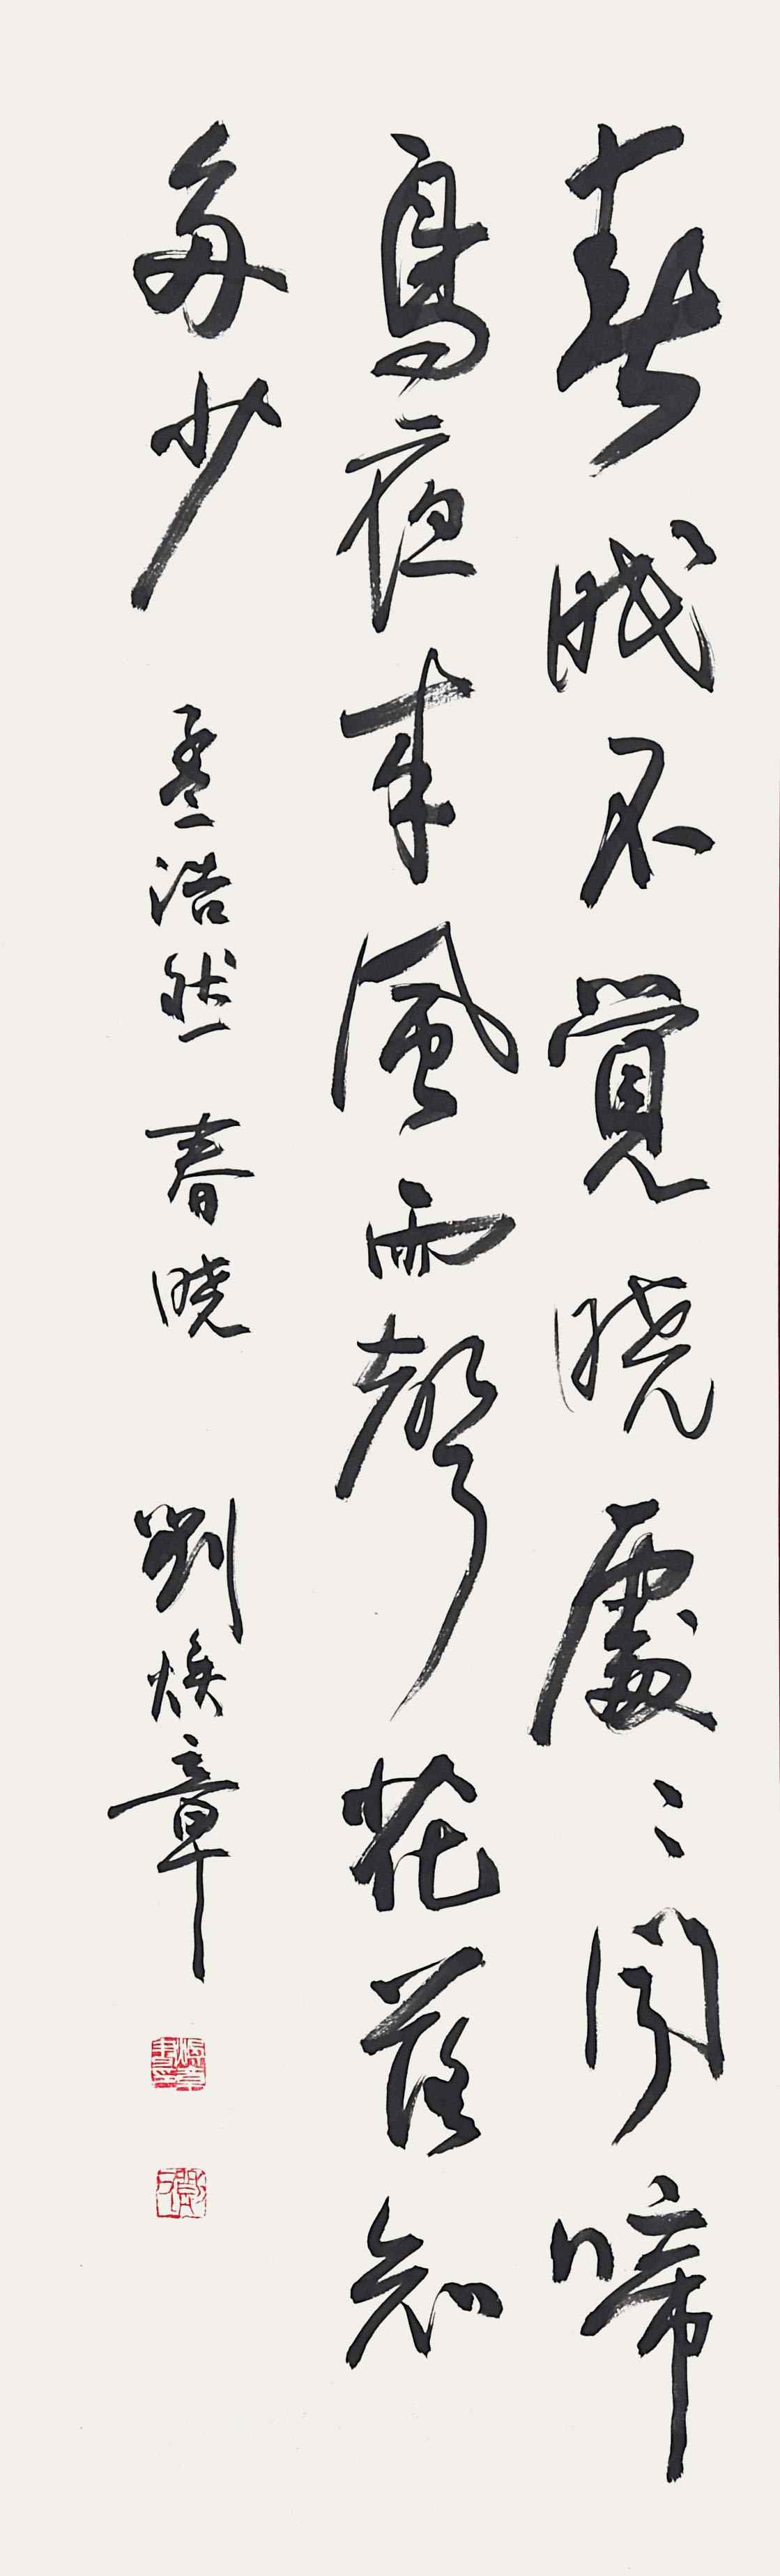 春眠不覺曉處々聞啼
鳥夜来風雨聲花落知
多少 孟浩然 春曉 劉煥章
煥章書印